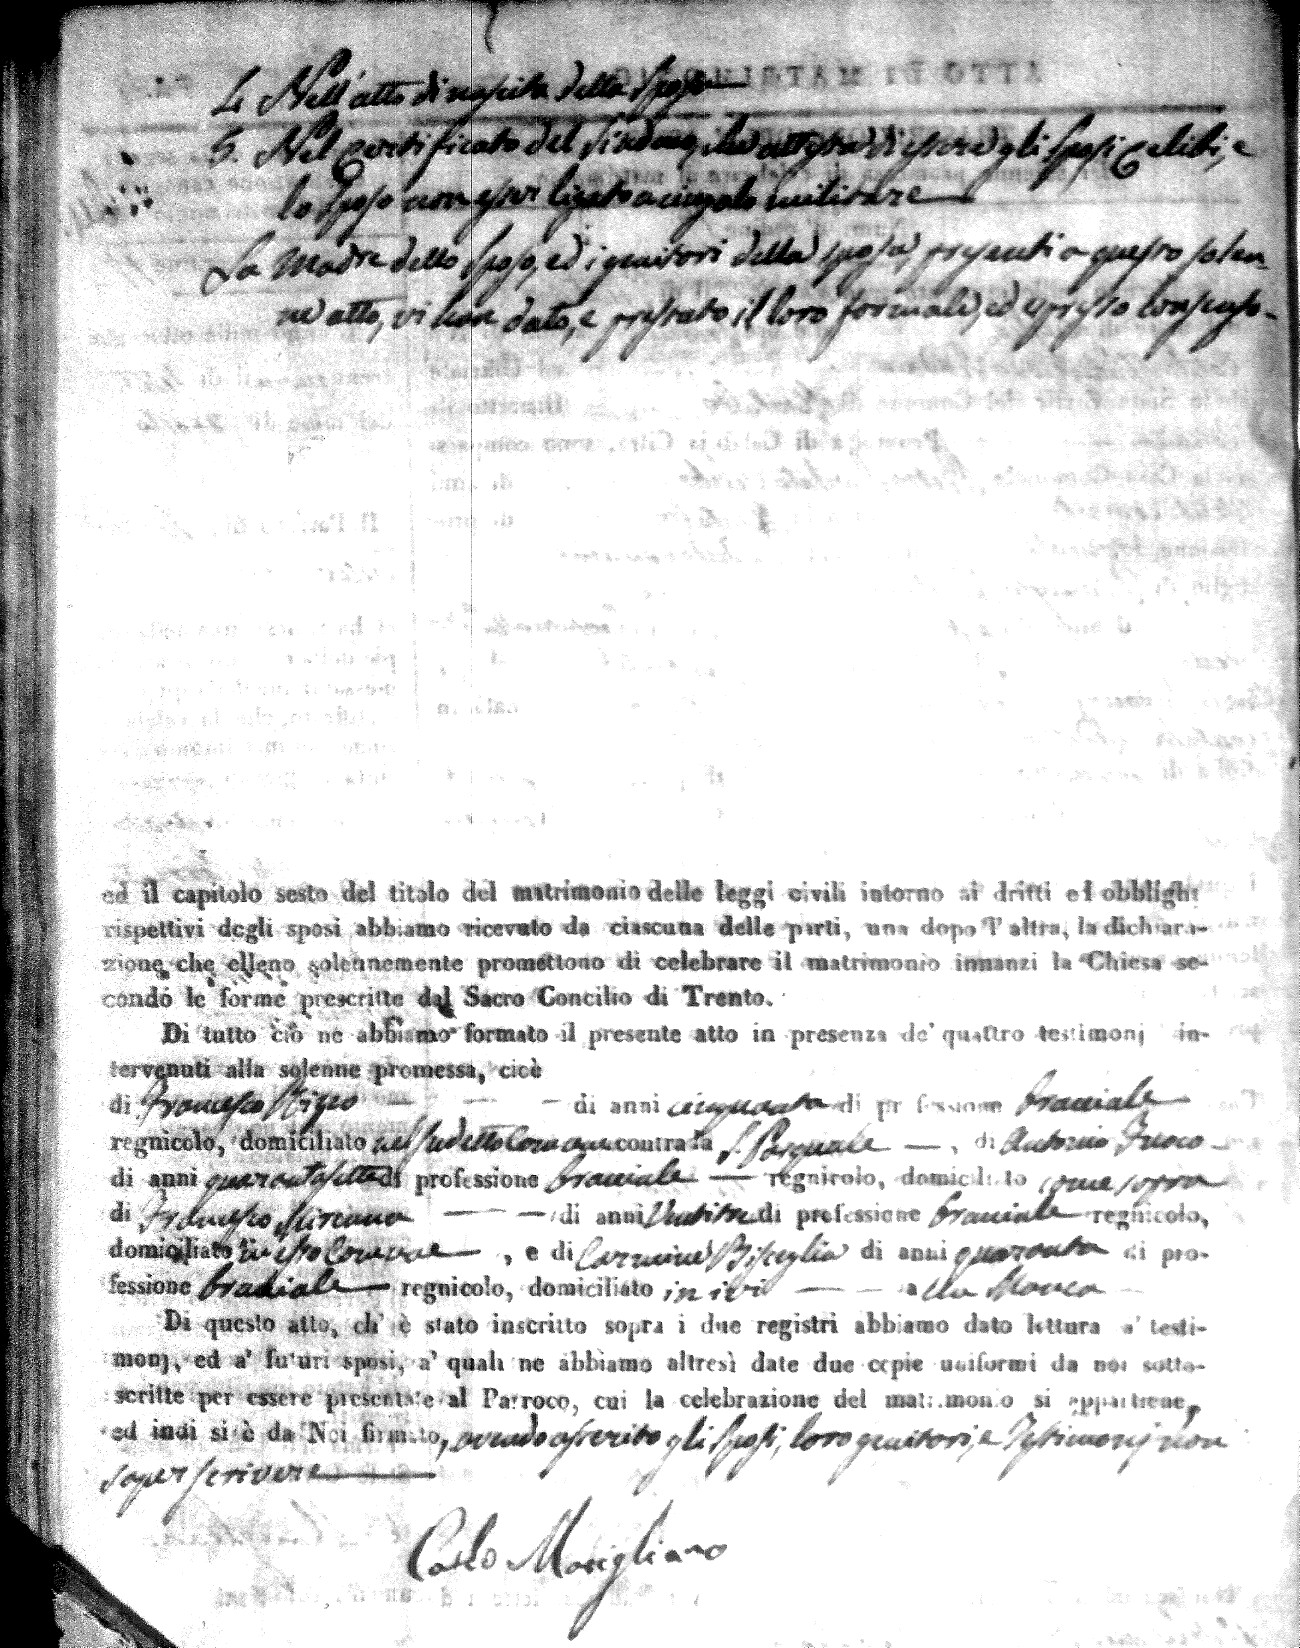 4. Nell'atto di nascita della sposa
5. Nel Certificato del Sindaco, che attesta di essere gli sposi Celibi, e
lo sposo non esser ligato a cingolo militare
La Madre dello sposo, ed i genitori della sposa, presenti a questo solen-
ne atto, vi han dato, e prestato il loro formale, ed espresso consenso.
ed il capitolo sesto del titolo del matrimonio delle leggi civili intorno ai dritti ed obblighi
rispettivi degli sposi abbiamo ricevuto da ciascuna delle parti, una dopo l'altra, la dichiara-
zione, che elleno solennemente promettono di celebrare il matrimonio innanzi la Chiesa se-
condo le forme prescritte dal Sacro Concilio di Trento.
Di tutto ciò ne abbiamo formato il presente atto in presenza de' quattro testimonj in-
tervenuti alla solenne promessa, cioè
di Francesco Rizzo di anni cinquanta di professione bracciale
regnicolo, domiciliato nel sudetto Comune contrada S. Pasquale, di Antonio Fusco
di anni quarantasette di professione bracciale regnicolo, domiciliato come sopra
di Francesco di anni Ventitre di professione bracciale regnicolo,
domiciliato in esso Comune, e di Carmine Bisceglia di anni quaranta di pro-
fessione bracciale regnicolo, domiciliato in ivi alla
Di questo atto, ch' è stato inscritto sopra i due registri abbiamo dato lettura a' testi-
monj, ed a' futuri sposi, a' quali ne abbiamo altresì date due copie uniformi da noi sotto-
scritte per essere presentate al Parroco, cui la celebrazione del matrimonio si appartiene,
ed indi si è da Noi firmato, avendo asserito gli sposi, loro genitori, e Testimonj non
saper scrivere
Carlo Marigliano